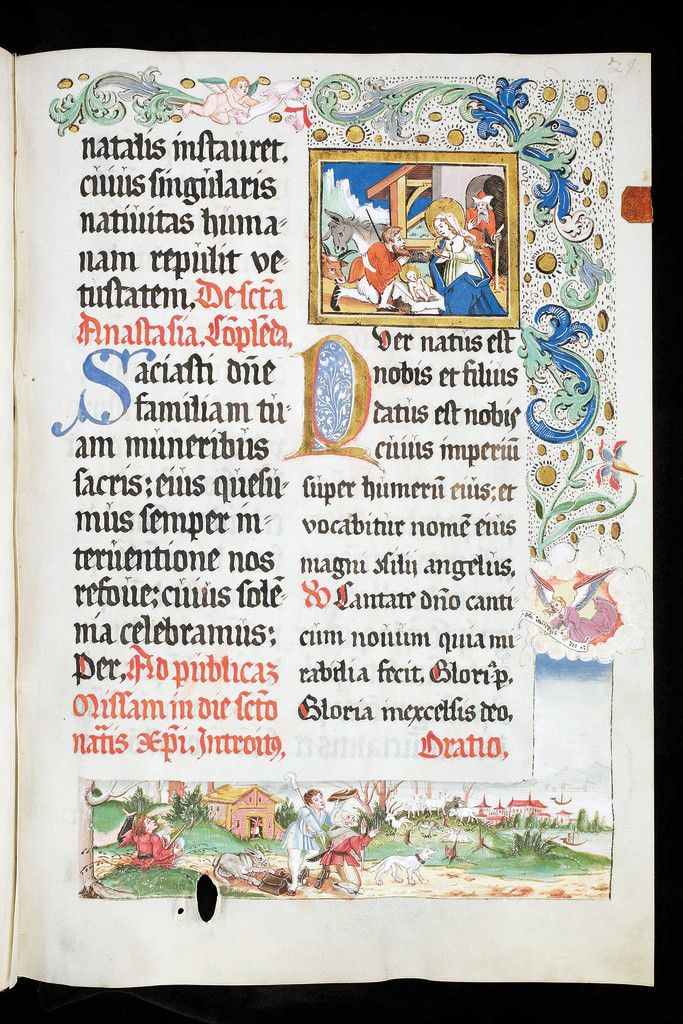 29.
natalis instauret.
cuius singularis
natiuitas huma-
nam repulit ve-
tustatem. De sctā
Anastasia. Cōplēda.
Saciasti dn̄e
familiam tu-
am muneribus
sacris: eius quesu-
mus semper in-
teruentione nos
refoue: cuius solē-
nia celebramus:
Per. Ad publicaȝ
Missam in die scto
nat̄is xp̄i. Introitꝰ.
PVer natus est
nobis et filius
datus est nobis
cuius imperiū
super humerū eius: et
vocabitur nomē eius
magni ꝯsilij angelus.
Cantate dn̄o canti
cum nouum quia mi
rabilia fecit. Glori p̄.
Gloria inexcelsis deo.
Oratio.